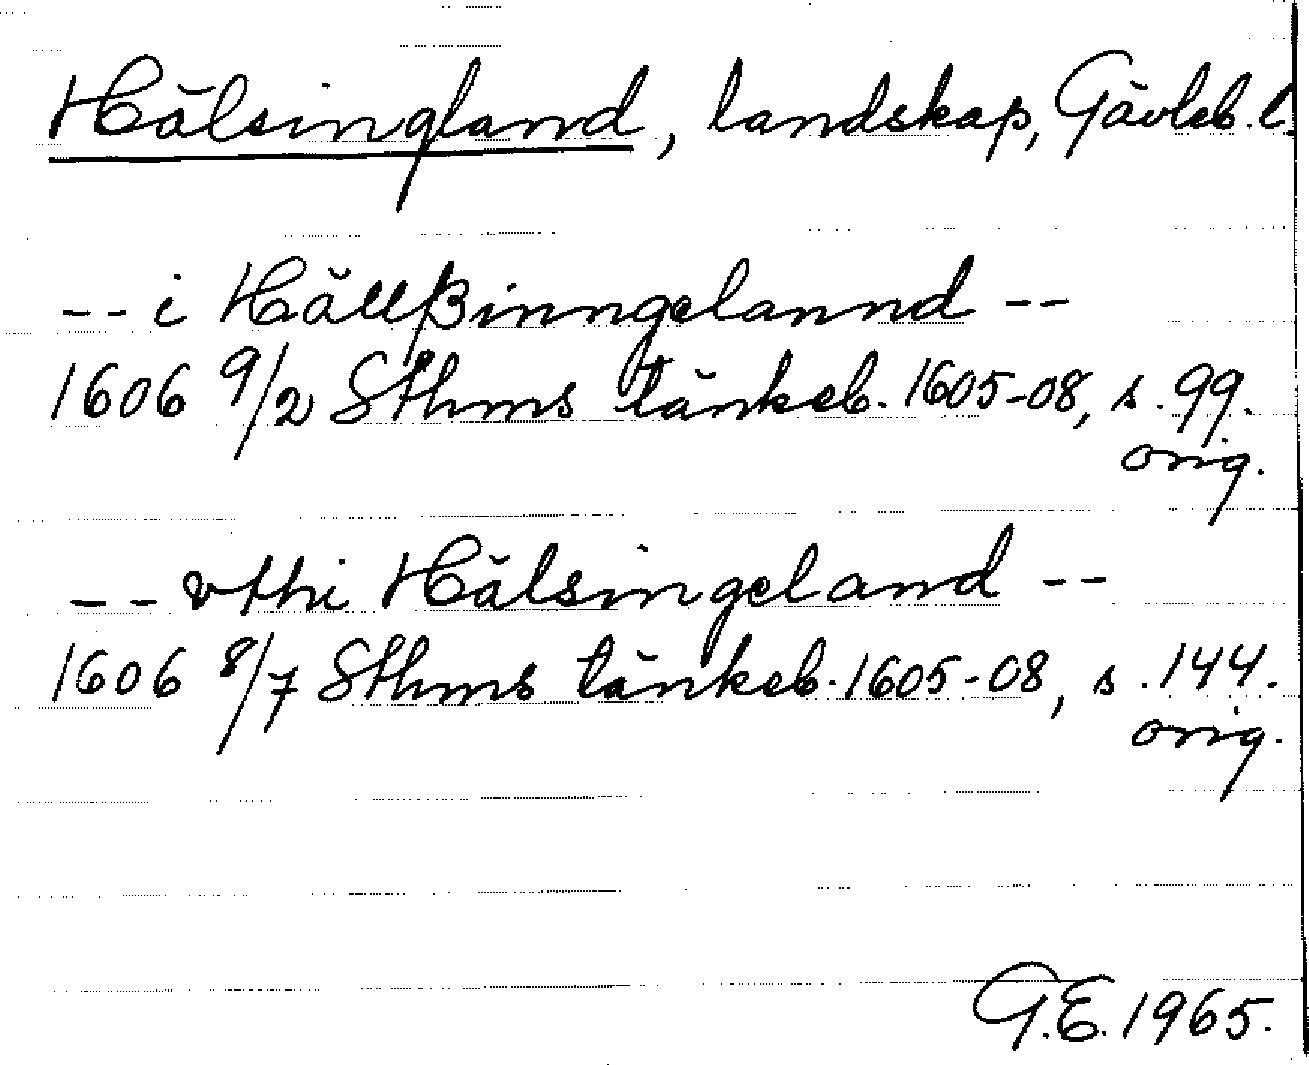 Hälsingland, landskap, Gävleb. l.
-- i Hällßinngelannd --
1606 9/2 Sthms tänkeb. 1605-08, s. 99.
orig.
-- vthi Hälsingeland --
1606 8/7 Sthms tänkeb. 1605-08, s. 144.
orig.
G.E. 1965.